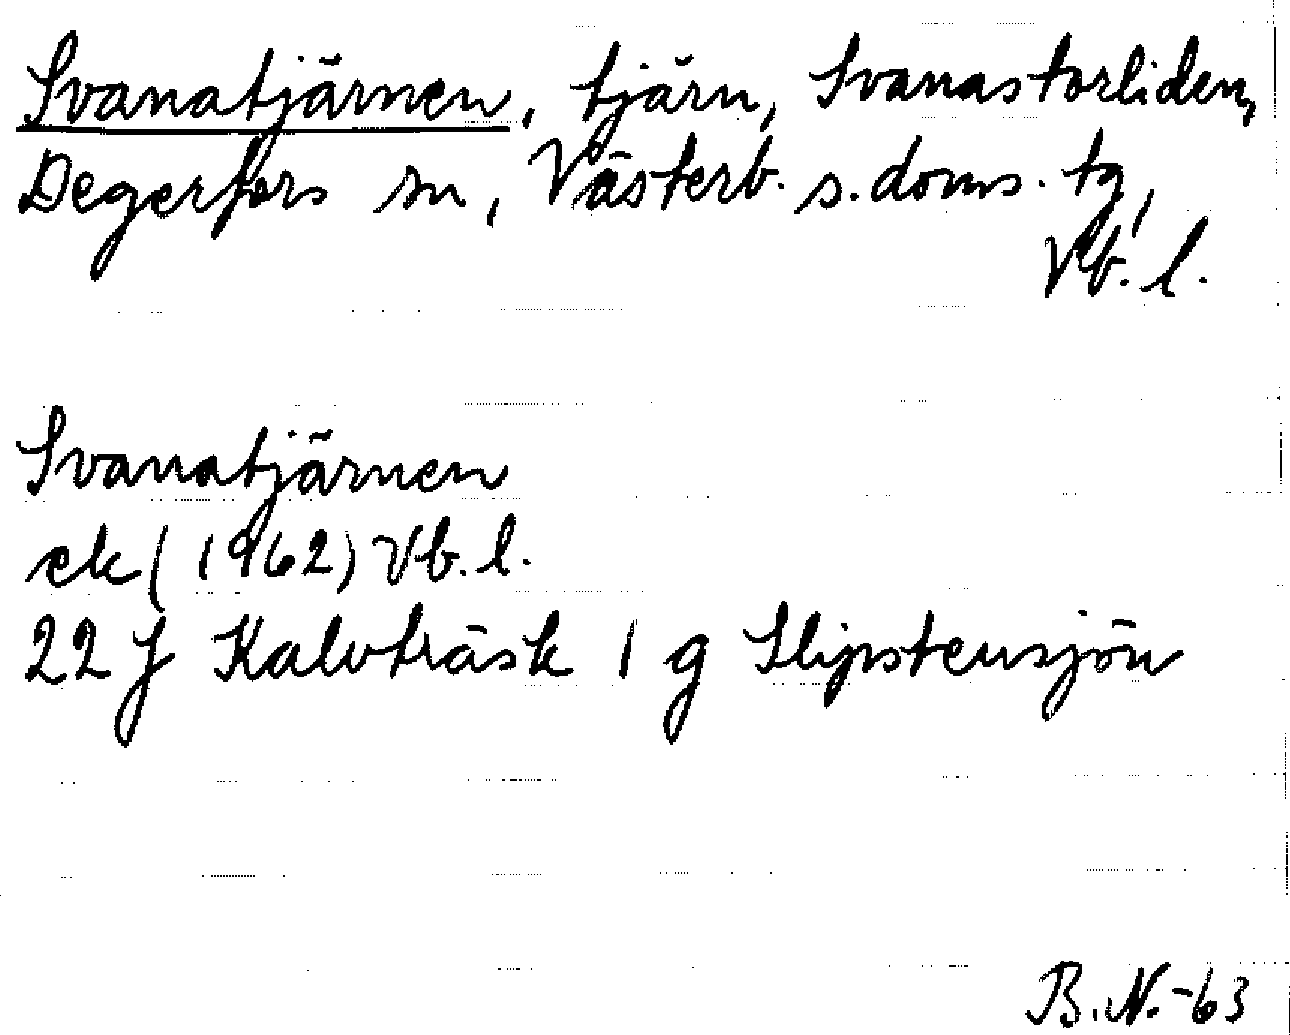 Svanatjärnen, tjärn, Svanastorliden,
Degerfors sn, Västerb. s. doms. tg,
Vb. l.
Svanatjärnen
ek (1962) Vb. l.
22 J Kalvträsk 1 g Slipstensjön
B.N.-63